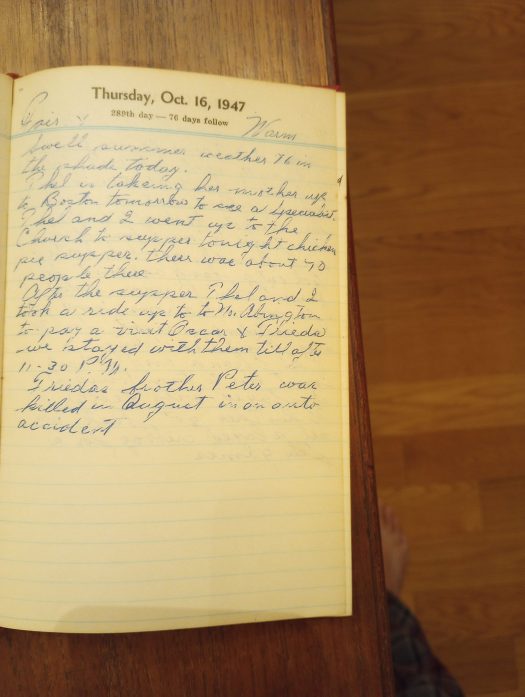 Thursday, Oct. 16, 1947
289th day — 76 days follow
Fair & Warm
Swell summer weather 76 in
the shade today.
Thel is takeing her mother up
to Boston tomorrow to see a specialist
Thel and I went up to the
Church to supper tonight chicken
pie supper. there was about 70
people there
After the supper Thel and I
took a ride up to to No. Abington
to pay a visit Oscar & Frieda
we stayed with them till after
11-30 P.M.
Friedas brother Peter was
killed in August in an auto
accident